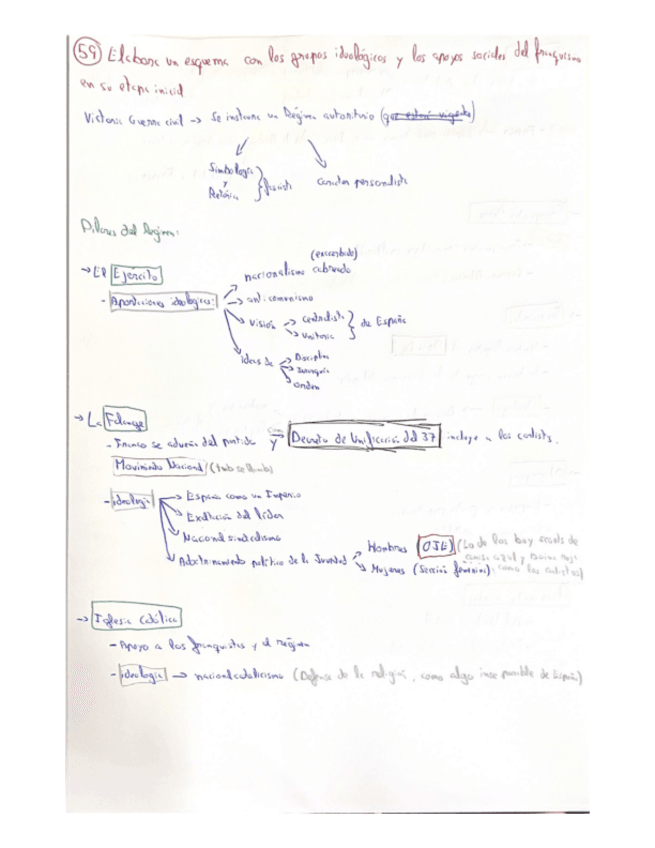 59 Elabora un esquema con los grupos ideológicos y los apoyos sociales del franquismo
en su etapa inicial
Victoria Guerra civil → Se instaura un Régimen autoritario (que estará vigente)
Simbología
y
Retórica } fascista
Carácter personalista
Pilares del Régimen:
→ El Ejército
(exacerbado)
nacionalismo
- Aportaciones ideológicas:
→ anticomunismo
→ visión → centralista
→ unitaria } de España
→ ideas de → Disciplina
→ Jerarquía
→ Orden
→ La Falange
- Franco se adueña del partido y Decreto de Unificación del 37 incluye a los carlistas.
Movimiento Nacional
- ideología → España como un Imperio
→ Exaltación del líder
→ Nacional sindicalismo
→ Adoctrinamiento político de la Juventud → Hombres (OJE) (Lo de los boy scouts de
camisa azul y boina roja
→ Mujeres (Sección femenina) como los carlistas)
→ Iglesia Católica
- Apoyo a los franquistas y el régimen
- ideología → nacionalcatolicismo (Defensa de la religión, como algo inseparable de España)